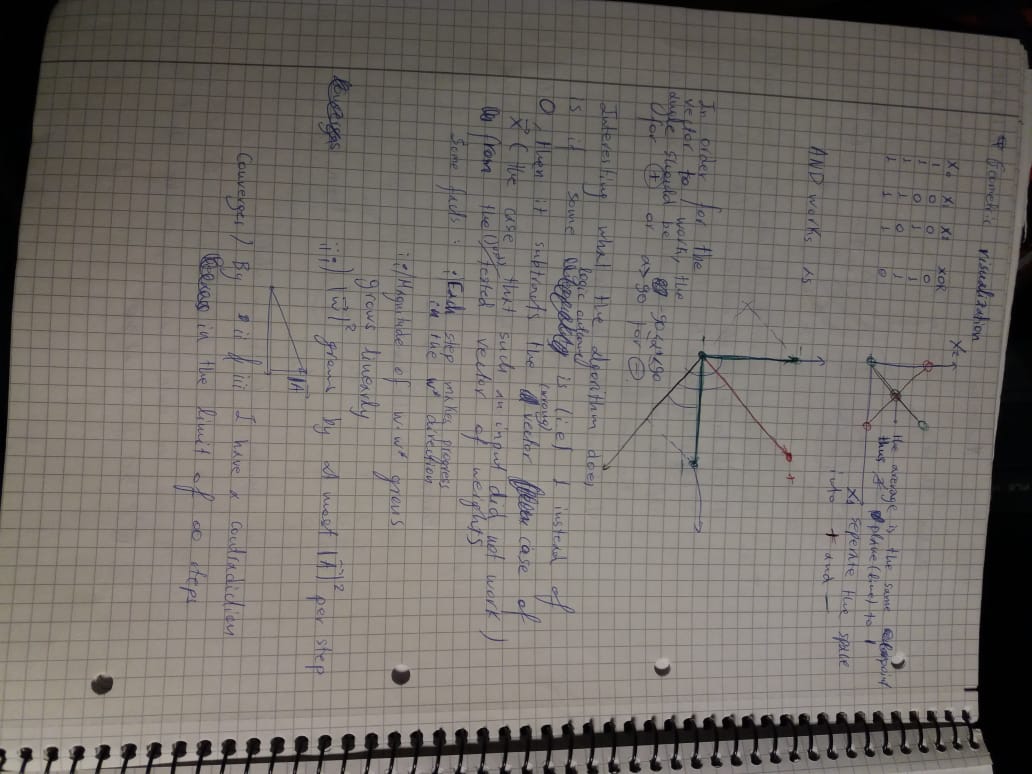 Geometric visualization
X₀ X₁ X₂ XOR
1 0 0 0
1 0 1 1
1 1 0 1
1 1 1 0
X₂
the average is the same point
thus plane (line) to
X₁ seperate the space
into + and —
AND works as
+
In order for the
vector to work, the
angle should be -90<α<90
for ⊕ or α>90 for ⊖.
Interesting what the algorithm does
is if some logic outcome is (i.e) 1 instead of
0, then it subtracts the (wrong) vector case of
x⃗ (the case that such an input did not work)
from the tested vector of weights
Some facts: i) Each step makes progress
in the w* direction
ii) Magnitude of w·w* grows
grows linearly
iii) |w⃗|² grows by at most |A⃗|² per step
|A⃗
Converges) By ii & iii I have a contradiction
in the limit of ∞ steps